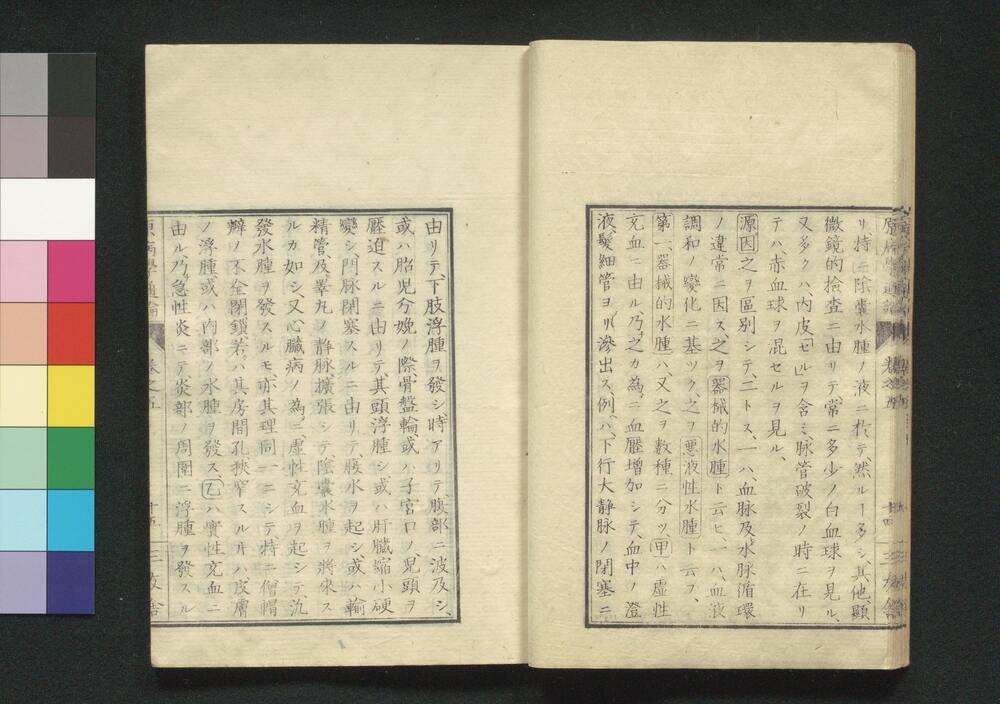 リ、特ニ陰嚢水腫ノ液ニ於テ、然ルヿ多シ、其他、顕
微鏡的捡査ニ由リテ、常ニ多少ノ白血球ヲ見ル、
又多クハ、内皮「セル」ヲ含ミ、脉管破裂ノ時ニ在リ
テハ、赤血球ヲ混セルヲ見ル、
源因之ヲ區别シテ、二トス、一ハ、血脉及水脉循環
ノ違常ニ因ス之ヲ器械的水腫ト云ヒ、一ハ、血液
調和ノ變化ニ基ツク、之ヲ悪液性水腫ト云フ、
第一、器械的水腫ハ、又之ヲ數種ニ分ツ、甲ハ虚性
充血ニ由ル、乃之カ為ニ血壓増加シテ、血中ノ澄
液髮細管ヨリ滲出ス、例ハ、下行大静脉ノ閉塞ニ
由リテ、下肢浮腫ヲ發シ、時アリテ、腹部ニ波及シ、
或ハ胎児分娩ノ際骨盤輪或ハ子宮口ノ児頭ヲ
壓迫スルニ由リテ、其頭浮腫シ或ハ肝臓縮小硬
變シ、門脉閉塞スルニ由リテ、腹水ヲ起シ或ハ輸
精管、及、睾丸ノ静脉、擴張シテ、陰嚢水腫ヲ將來ス
ルカ如シ、又心臓病ノ為ニ、虚性充血ヲ起シテ、汎
發水腫ヲ發スルモ亦其理同一ニシテ、特ニ僧帽
瓣ノ不全閉鎖若クハ其房間孔狭窄スル片ハ、皮膚
ノ浮腫或ハ内部ノ水腫ヲ發ス、乙ハ實性充血ニ
由ル、乃急性炎ニテ炎部ノ周圍ニ浮腫ヲ發スル
原病學通論
卷之五
十五
三友舎